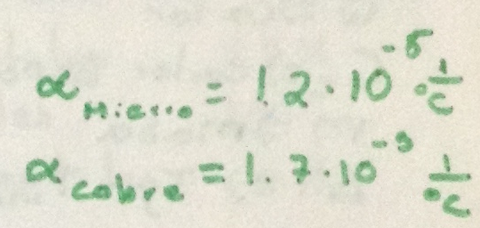 α Hierro = 1.2 · 10⁻⁵ 1/°C
α cobre = 1.7 · 10⁻⁵ 1/°C